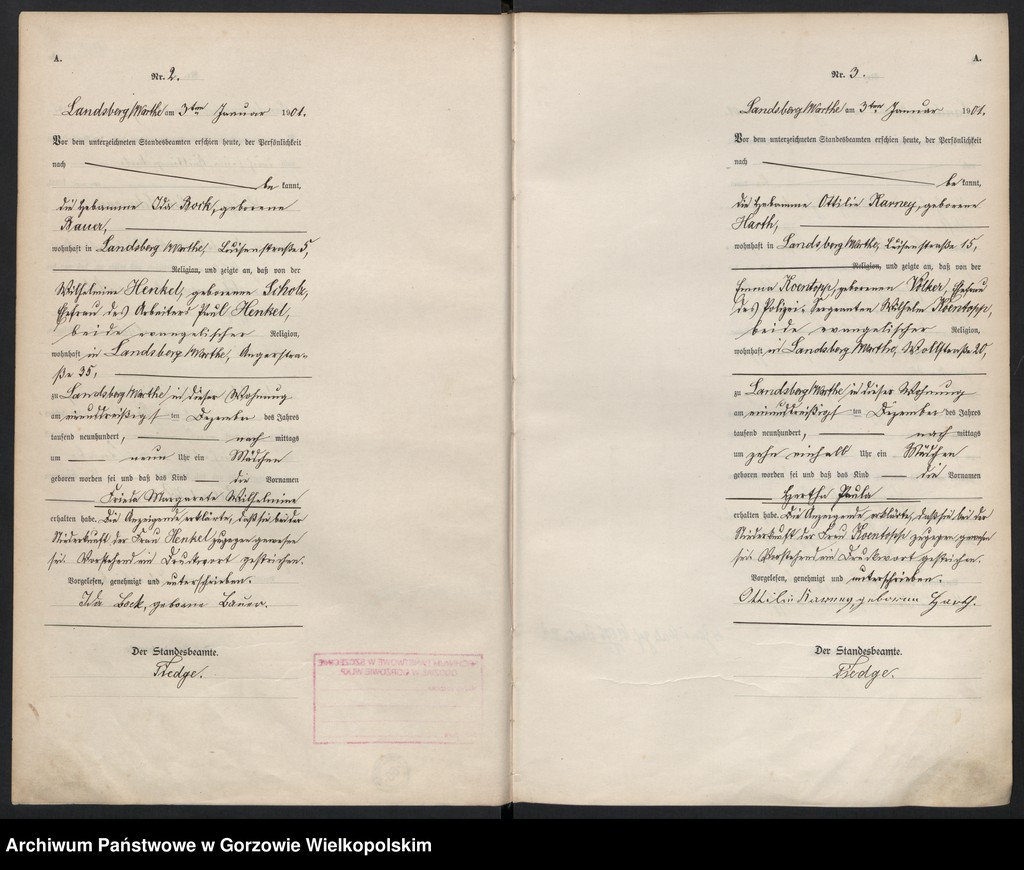 A.
Nr. 2.
Landsberg/Warthe am 3ten Januar 1901.
Vor dem unterzeichneten Standesbeamten erschien heute, der Persönlichkeit
nach
be kannt,
die Hebamme Ida Bock, geborene
Bauer,
wohnhaft in Landsberg/Warthe, Luisenstraße 5,
Religion, und zeigte an, daß von der
Wilhelmine Henkel, geborenen Scholz,
Ehefrau des Arbeiters Paul Henkel,
beide evangelischer Religion,
wohnhaft in Landsberg/Warthe, Angerstra-
ße 35,
zu Landsberg/Warthe in dieser Wohnung
am einunddreißigsten Dezember des Jahres
tausend neunhundert, nach mittags
um neun Uhr ein Mädchen
geboren worden sei und daß das Kind die Vornamen
Frieda Margarete Wilhelmine
erhalten habe. Die Anzeigende erklärte, daß sie bei der
Niederkunft der Frau Henkel zugegen gewesen
sei. Vorstehend ein Druckwort gestrichen.
Vorgelesen, genehmigt und unterschrieben.
Ida Bock, geborne Bauer.
Der Standesbeamte.
Fiedge.
A.
Nr. 3.
Landsberg/Warthe am 3ten Januar 1901.
Vor dem unterzeichneten Standesbeamten erschien heute, der Persönlichkeit
nach
be kannt,
die Hebamme Ottilie Karney, geborene
Harth,
wohnhaft in Landsberg/Warthe, Luisenstraße 15,
Religion, und zeigte an, daß von der
Emma Koentopp, geborenen Völker, Ehefrau
des Polizei-Sergeanten Wilhelm Koentopp,
beide evangelischer Religion,
wohnhaft in Landsberg/Warthe, Wollstraße 20,
zu Landsberg/Warthe in dieser Wohnung
am einunddreißigsten Dezember des Jahres
tausend neunhundert, nach mittags
um zehn einhalb Uhr ein Mädchen
geboren worden sei und daß das Kind die Vornamen
Hertha Paula
erhalten habe. Die Anzeigende erklärte, daß sie bei der
Niederkunft der Frau Koentopp zugegen gewesen
sei. Vorstehend ein Druckwort gestrichen.
Vorgelesen, genehmigt und unterschrieben.
Ottilie Karney, geborene Harth.
Der Standesbeamte.
Fiedge.
Archiwum Państwowe w Gorzowie Wielkopolskim